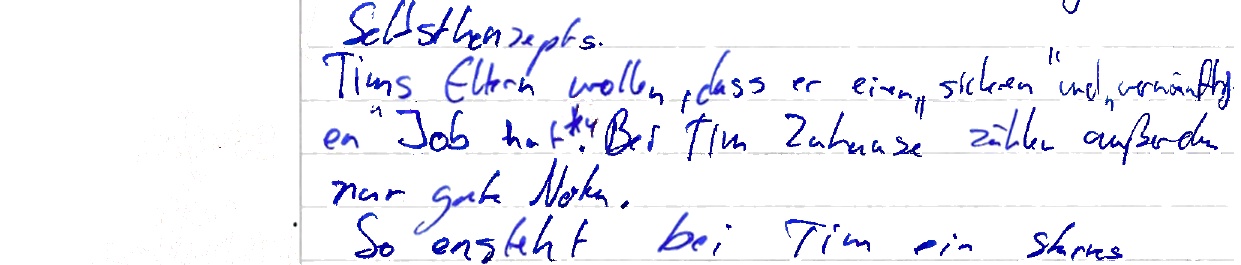 Selbstkonzepts.
Tims Eltern wollen, dass er einen „sicheren" und „vernünftig-
en" Job hat.*4 Bei Tim Zuhause zählen außerdem
nur gute Noten.
So ensteht bei Tim ein starres